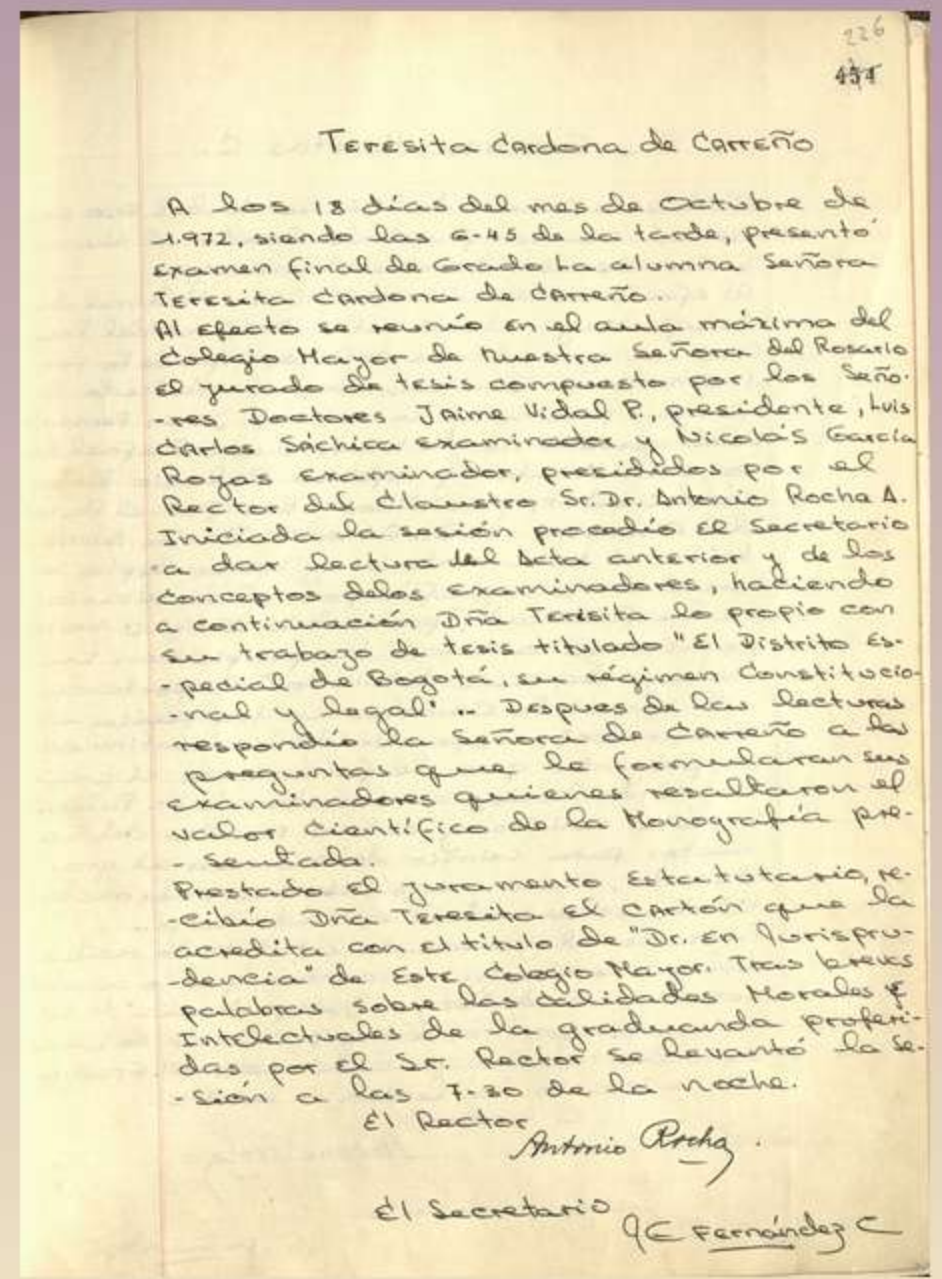 226
454
Teresita Cardona de Carreño
A los 18 días del mes de Octubre de
1.972, siendo las 6-45 de la tarde, presentó
examen final de Grado La alumna Señora
Teresita Cardona de Carreño.
Al efecto se reunío en el aula máxima del
Colegio Mayor de Nuestra Señora del Rosario
el jurado de tesis compuesto por los Seño-
-res Doctores Jaime Vidal P., presidente, Luis
Carlos Sáchica examinador y Nicolás García
Rojas examinador, presididos por el
Rector del Claustro Sr. Dr. Antonio Rocha A.
Iniciada la sesión procedío el Secretario
a dar lectura del Acta anterior y de los
conceptos delos examinadores, haciendo
a continuación Dña Teresita lo propio con
su trabajo de tesis titulado "El Distrito Es-
-pecial de Bogotá, su régimen Constitucio-
-nal y legal" .. Despues de las lecturas
respondío la Señora de Carreño a las
preguntas que le formularan sus
examinadores quienes resaltaron el
valor Científico de la Monografía pre-
-sentada.
Prestado el juramento Estatutario, re-
-cibío Dña Teresita el cartón que la
acredita con el título de "Dr. en Jurispru-
-dencia" de Este Colegio Mayor. Tras breves
palabras sobre las calidades Morales E
Intelectuales de la graduanda proferi-
das por el Sr. Rector se levantó la Se-
-sión a las 7-30 de la noche.
El Rector
Antonio Rocha.
El Secretario
JE Fernández C